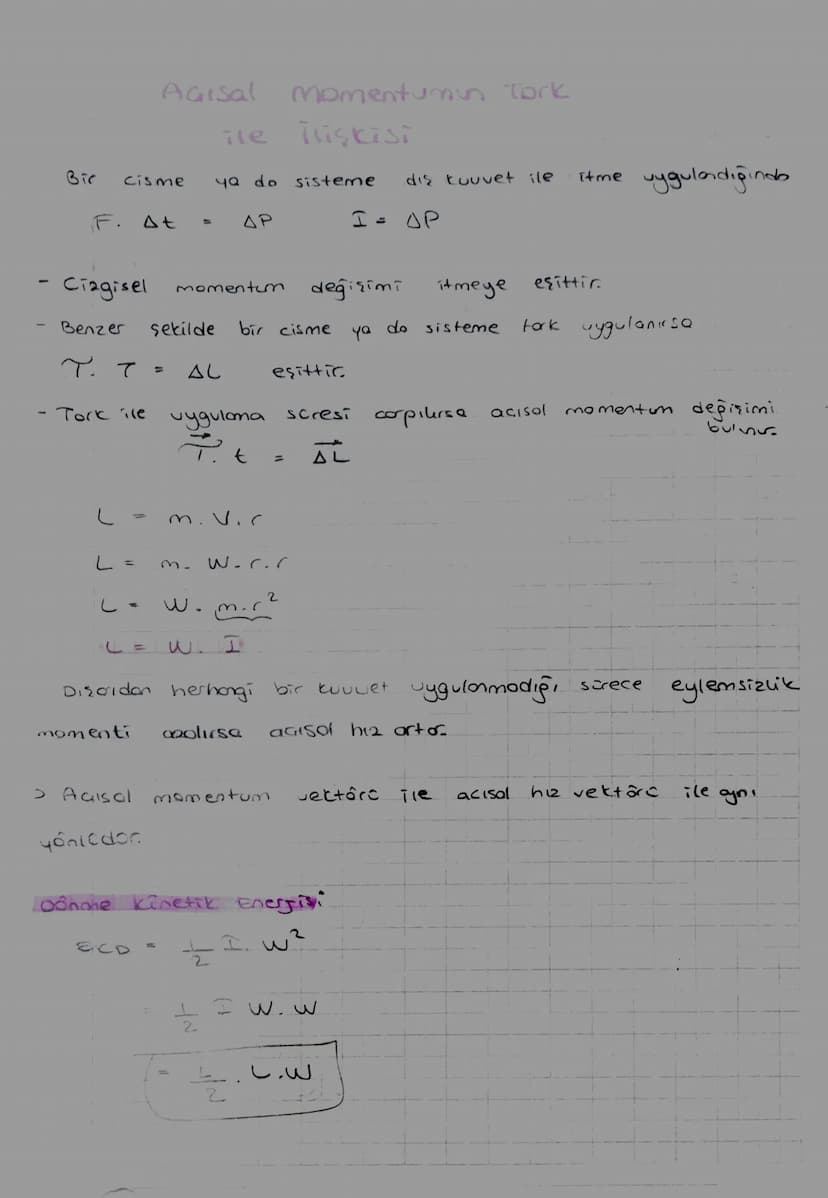 Açısal Momentumun Tork
ile İlişkisi
Bir cisme ya da sisteme dış kuvvet ile itme uygulandığında
F. Δt = ΔP I = ΔP
- Çizgisel momentum değişimi itmeye eşittir.
- Benzer şekilde bir cisme ya da sisteme tork uygulanırsa
τ. T = ΔL eşittir.
- Tork ile uygulama süresi çarpılırsa açısal momentum değişimi
bulunur.
τ⃗. t = ΔL⃗
L = m. V. r
L = m. W. r. r
L = W. m.r²
L = W. I
Dışarıdan herhangi bir kuvvet uygulanmadığı sürece eylemsizlik
momenti azalırsa açısal hız artar.
> Açısal momentum vektörü ile açısal hız vektörü ile aynı
yönlüdür.
Dönme Kinetik Enerjisi
ECD = 1/2 I. W²
= 1/2 I W. W
= 1/2 . L.W